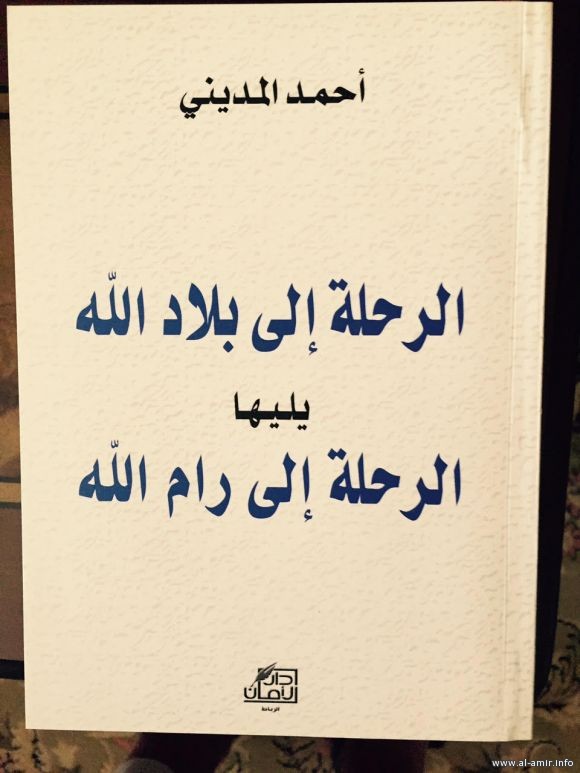 أحمد المديني
الرحلة إلى بلاد الله
يليها
الرحلة إلى رام الله
دار
الأمان
الرباط
www.al-amir.info